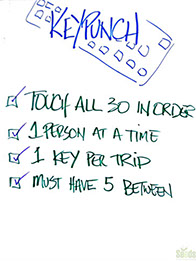 KEYPUNCH
TOUCH ALL 30 IN ORDER
1 PERSON AT A TIME
1 KEY PER TRIP
MUST HAVE 5 BETWEEN